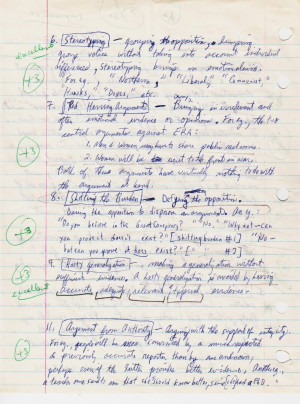 6. Stereotyping — grouping opposition, lumping
group voices without taking into account individual
differences, stereotyping brings in emotionalism.
excellent
For eg., "Northerns," "Liberals," "Communist,"
+3
Hawks," "Doves," etc.
7. Red Herring Arguments — Bringing in irrelevant and
often emotional evidence or opinions. For eg., the
central arguments against ERA:
1. Men & Women may have to share public restrooms.
+3
2. Women will be sent to the front in war.
Both of these arguments have virtually nothing to do with
the argument at hand.
8. Shifting the Burden — Defying the opposition.
Daring the opposition to disprove an argument. For eg.:
+3
"Do you believe in the Easter bunny?" "No." "Why not — can
you prove it doesn't exist?" [shifting burden #1] "No —
but can you prove it does exist?" [" " #2]
9. Hasty generalization — making a generalization without
+3
sufficient evidence. A hasty generalization is avoided by having
excellent
accurate, adequate, relevant, typical evidence.
11. Argument from Authority — Arguing with the support of integrity.
For eg., people will be more convinced by a much respected
+3
& previously accurate reporter than by an unknown,
perhaps even if the latter provides better evidence. Another,